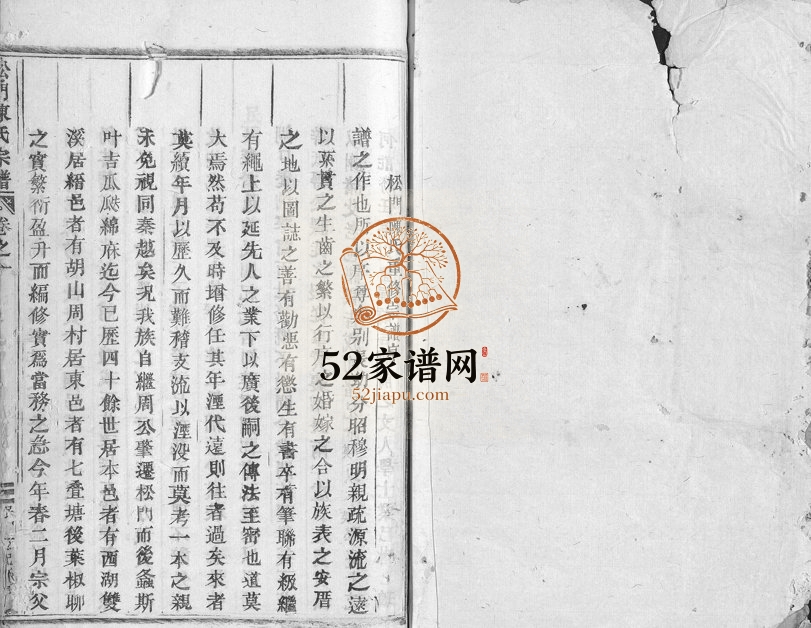 松門陳氏重修宗譜序
譜之作也所以序尊 別 昭穆明親疏源流之遠
以菉賫之生齒之繁以行 之婚嫁之合以族表之安厝
之地以圖誌之善有勸惡有懲生有書卒有筆聯有級繼
有繩上以延先人之業下以廣後嗣之傳法至密也道莫
大焉然苟不及時增修任其年湮代遠則往者過矣來者
莫續年月以歷久而難稽支流以湮没而莫考一本之親
未免視同秦越矣况我族自繼周公肇遷松門而後螽斯
叶吉瓜瓞綿庥迄今已歷四十餘世居本邑者有西湖雙
溪居縉邑者有胡山周村居東邑者有七疊塘後葉椒聊
之實繁衍盈升而編修實爲當務之急今年春二月宗父
松門陳氏宗譜
卷之
52家谱网
52jiapu.com